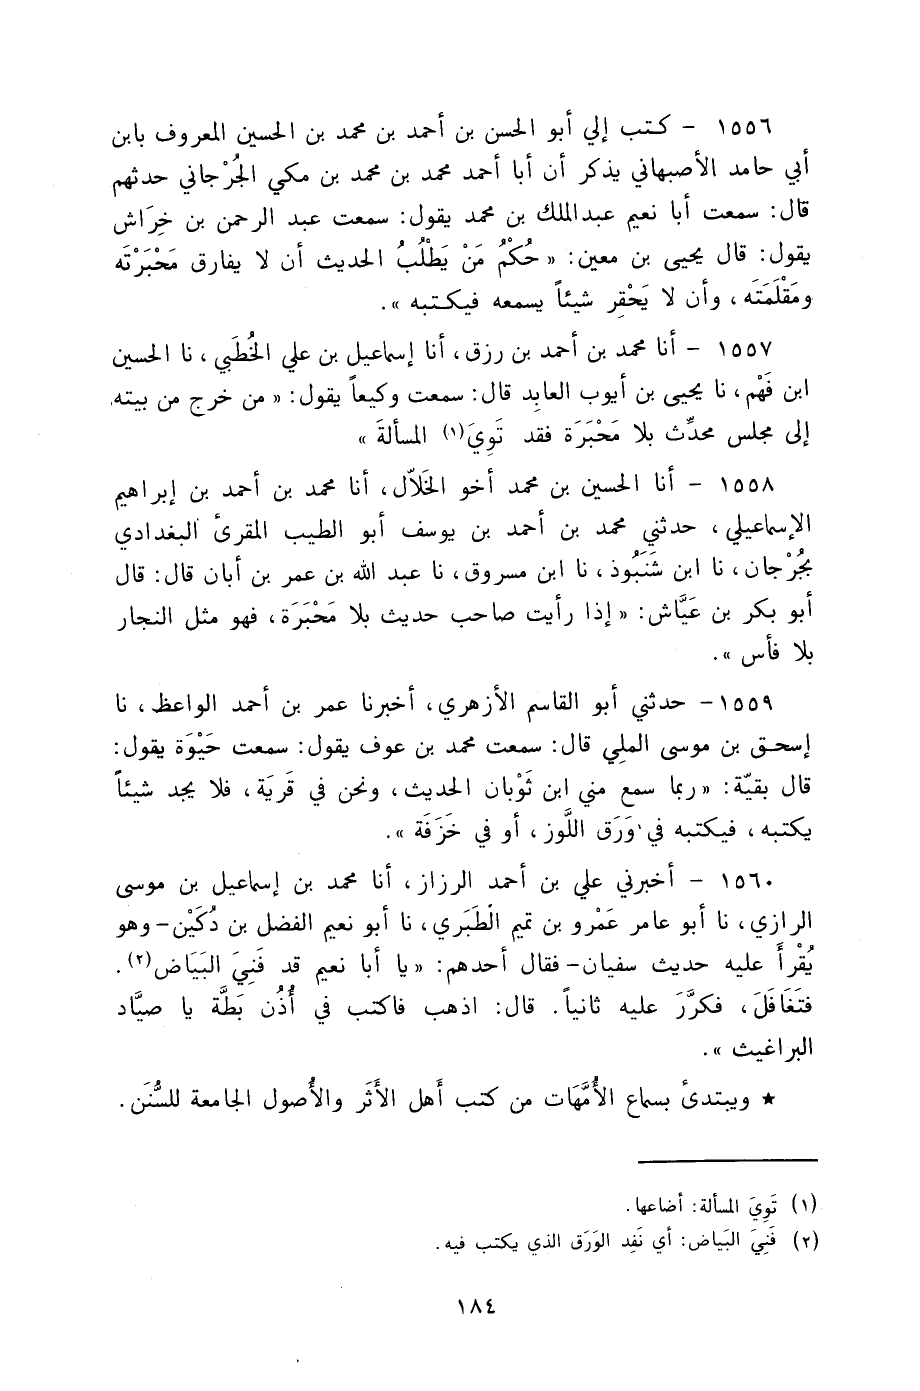 ١٥٥٦ - كتب إلي أبو الحسن بن أحمد بن محمد بن الحسين المعروف بابن
أبي حامد الأصبهاني يذكر أن أبا أحمد محمد بن محمد بن مكي الجُرْجاني حدثهم
قال: سمعت أبا نعيم عبدالملك بن محمد يقول: سمعت عبد الرحمن بن خِرَاش
يقول: قال يحيى بن معين: « حُكْمُ مَنْ يَطْلُبُ الحديث أن لا يفارق مَحْبَرَتَه
ومَقْلَمَتَه ، وأن لا يَحْقِر شيئاً يسمعه فيكتبه ».
١٥٥٧ - أنا محمد بن أحمد بن رزق، أنا إسماعيل بن علي الخُطَبي ، نا الحسين
ابن فَهْم، نا يحيى بن أيوب العابِد قال: سمعت وكيعاً يقول: « من خرج من بيته
إلى مجلس محدِّث بلا مَحْبَرَة فقد تَوِيَ(١) المسألةَ »
١٥٥٨ - أنا الحسين بن محمد أخو الخَلاّل، أنا محمد بن أحمد بن إبراهيم
الإسماعيلي ، حدثني محمد بن أحمد بن يوسف أبو الطيب المقرىٔ البغدادي
بجُرْجان، نا ابن شَنَبُوذ ، نا ابن مسروق، نا عبد الله بن عمر بن أبان قال: قال
أبو بكر بن عَيَّاش: « إذا رأيت صاحب حديث بلا مَحْبَرَة، فهو مثل النجار
بلا فأس ».
١٥٥٩ - حدثني أبو القاسم الأزهري، أخبرنا عمر بن أحمد الواعظ ، نا
إسحق بن موسى الملي قال: سمعت محمد بن عوف يقول: سمعت حَيْوَة يقول:
قال بقيّة: « ربما سمع مني ابن ثَوْبان الحديث ، ونحن في قَريَة ، فلا يجد شيئاً
يكتبه ، فيكتبه في وَرَق اللَّوز ، أو في خَزَفَة ».
١٥٦٠ - أخبرني علي بن أحمد الرزاز ، أنا محمد بن إسماعيل بن موسى
الرازي، نا أبو عامر عَمْرو بن تميم الطَبَري، نا أبو نعيم الفضل بن دُكَيْن - وهو
يُقْرأ عليه حديث سفيان - فقال أحدهم: « يا أبا نعيم قد فَنِيَ البَيَاض(٢).
فتَغَافَلَ، فكرَّرَ عليه ثانياً. قال: اذهب فاكتب في أُذُن بَطَّة يا صيَّاد
البراغيث ».
★ ويبتدىٔ بسماع الأُمَّهَات من كتب أهل الأَثَر والأُصول الجامعة للسُّنَن.
(١) تَوِيَ المسألة: أضاعها.
(٢) فَنِيَ البَياض: أي نَفِد الوَرَق الذي يكتب فيه.
١٨٤